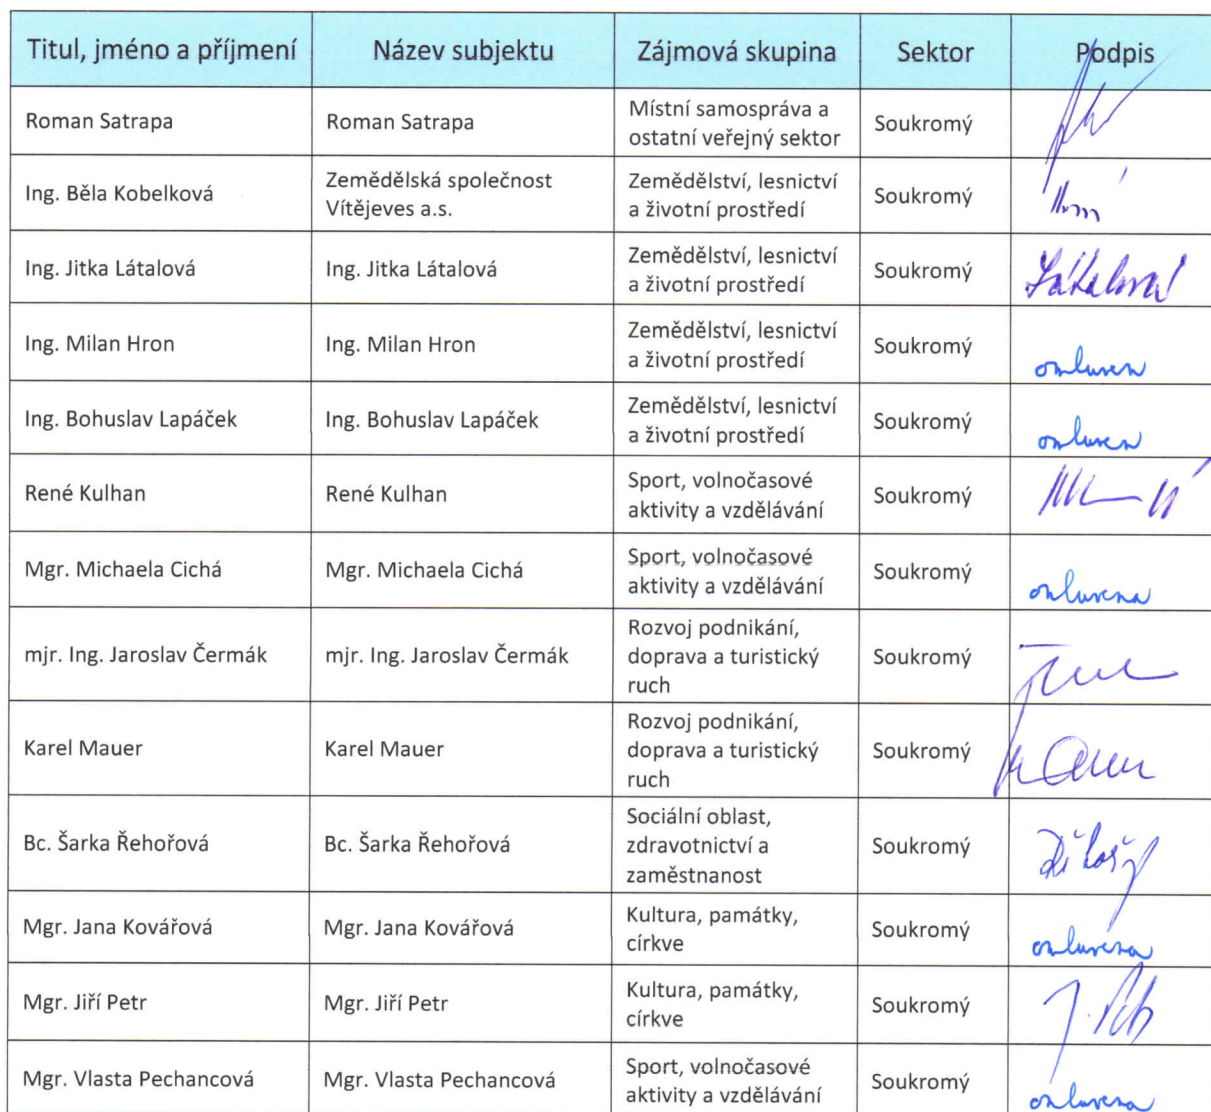 Titul, jméno a příjmení Název subjektu Zájmová skupina Sektor Podpis
Roman Satrapa Roman Satrapa Místní samospráva a
ostatní veřejný sektor Soukromý
Ing. Běla Kobelková Zemědělská společnost
Vítějeves a.s. Zemědělství, lesnictví
a životní prostředí Soukromý
Ing. Jitka Látalová Ing. Jitka Látalová Zemědělství, lesnictví
a životní prostředí Soukromý Látalová
Ing. Milan Hron Ing. Milan Hron Zemědělství, lesnictví
a životní prostředí Soukromý omluven
Ing. Bohuslav Lapáček Ing. Bohuslav Lapáček Zemědělství, lesnictví
a životní prostředí Soukromý omluven
René Kulhan René Kulhan Sport, volnočasové
aktivity a vzdělávání Soukromý
Mgr. Michaela Cichá Mgr. Michaela Cichá Sport, volnočasové
aktivity a vzdělávání Soukromý omluvena
mjr. Ing. Jaroslav Čermák mjr. Ing. Jaroslav Čermák Rozvoj podnikání,
doprava a turistický
ruch Soukromý
Karel Mauer Karel Mauer Rozvoj podnikání,
doprava a turistický
ruch Soukromý
Bc. Šarka Řehořová Bc. Šarka Řehořová Sociální oblast,
zdravotnictví a
zaměstnanost Soukromý
Mgr. Jana Kovářová Mgr. Jana Kovářová Kultura, památky,
církve Soukromý omluvena
Mgr. Jiří Petr Mgr. Jiří Petr Kultura, památky,
církve Soukromý
Mgr. Vlasta Pechancová Mgr. Vlasta Pechancová Sport, volnočasové
aktivity a vzdělávání Soukromý omluvena